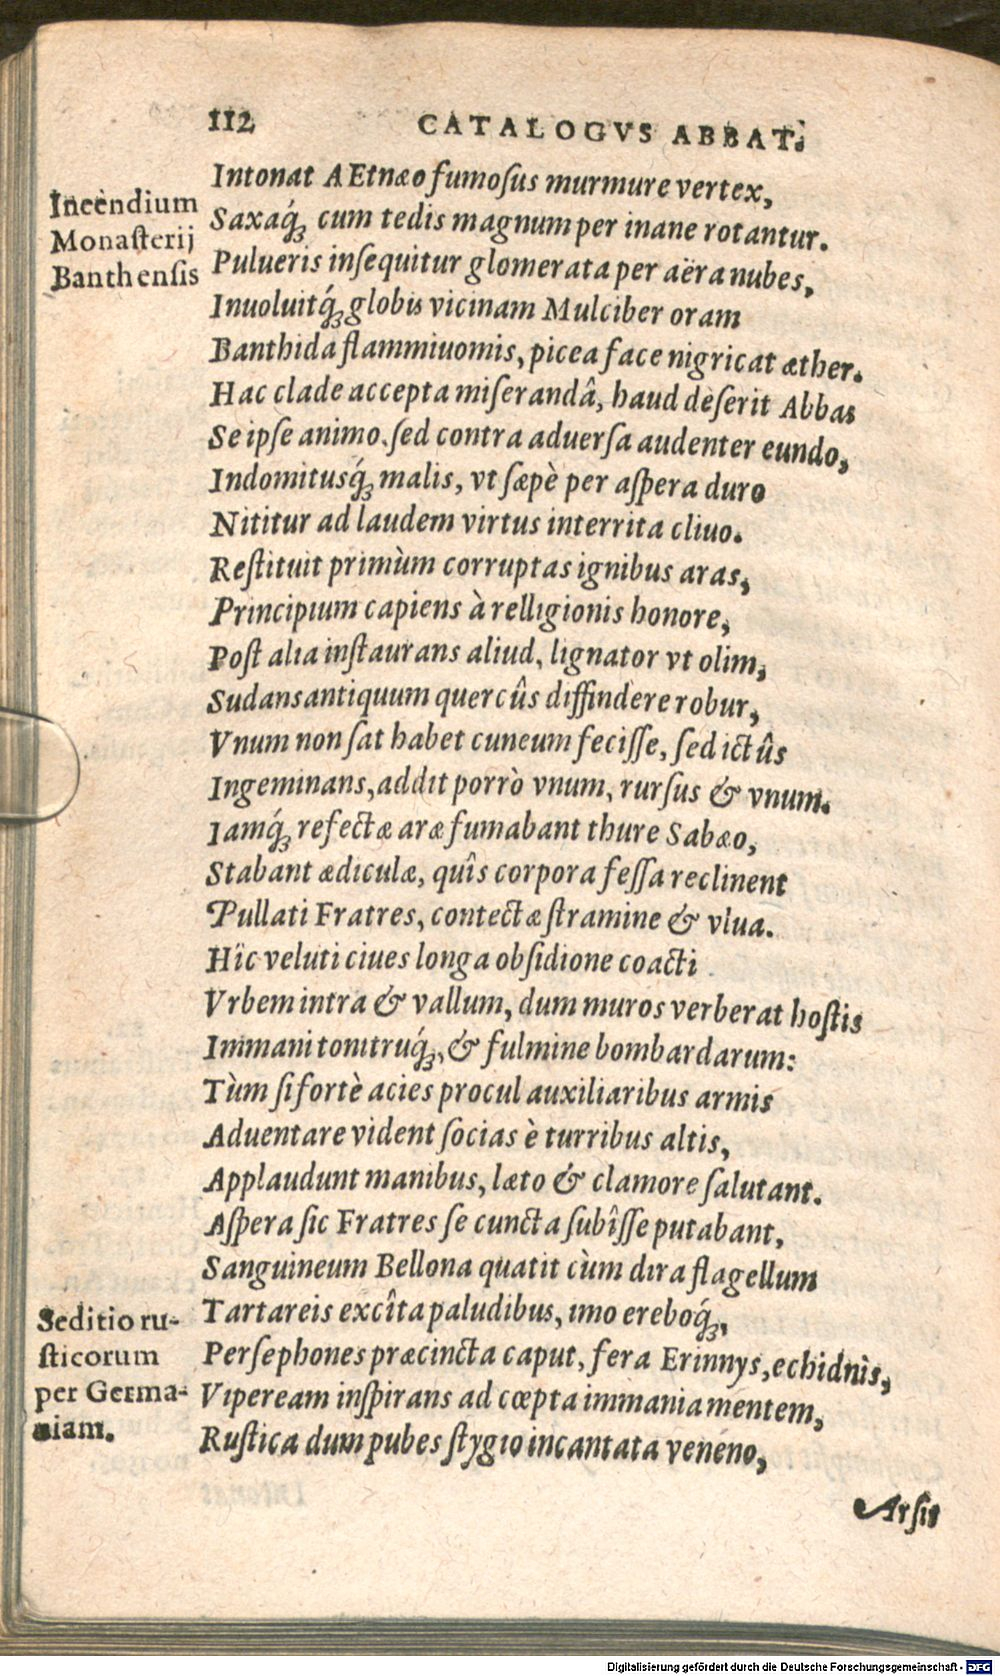 112 CATALOGVS ABBAT.
Incendium
Monaſterij
Banthenſis
Intonat AEtnæo fumoſus murmure vertex,
Saxaq́ꝫ cum tedis magnum per inane rotantur.
Pulueris inſequitur glomerata per aëra nubes,
Inuoluitq́ꝫ globis vicinam Mulciber oram
Banthida flammiuomis, picea face nigricat æther.
Hac clade accepta miſerandâ, haud deſerit Abbas
Se ipſe animo. ſed contra aduerſa audenter eundo,
Indomitusq́ꝫ malis, vt ſæpè per aſpera duro
Nititur ad laudem virtus interrita cliuo.
Reſtituit primùm corruptas ignibus aras,
Principium capiens à relligionis honore,
Poſt alia inſtaurans aliud, lignator vt olim,
Sudans antiquum quercûs diffindere robur,
Vnum non ſat habet cuneum feciſſe, ſed ictûs
Ingeminans, addit porrò vnum, rurſus & vnum.
Iamq́ꝫ refectæ aræ fumabant thure Sabæo,
Stabant ædiculæ, quîs corpora feſſa reclinent
Pullati Fratres, contectæ ſtramine & vlua.
Hîc veluti ciues longa obſidione coacti
Vrbem intra & vallum, dum muros verberat hoſtis
Immani tonitruq́ꝫ, & fulmine bombardarum:
Tùm ſi fortè acies procul auxiliaribus armis
Aduentare vident ſocias è turribus altis,
Applaudunt manibus, læto & clamore ſalutant.
Aſpera ſic Fratres ſe cuncta ſubîſſe putabant,
Sanguineum Bellona quatit cùm dira flagellum
Seditio ru-
ſticorum
per Germa-
niam.
Tartareis excîta paludibus, imo ereboq́ꝫ,
Perſephones præcincta caput, fera Erinnys, echidnis,
Vipeream inſpirans ad cœpta immania mentem,
Ruſtica dum pubes ſtygio incantata veneno,
Arſit
Digitalisierung gefördert durch die Deutsche Forschungsgemeinschaft - DFG